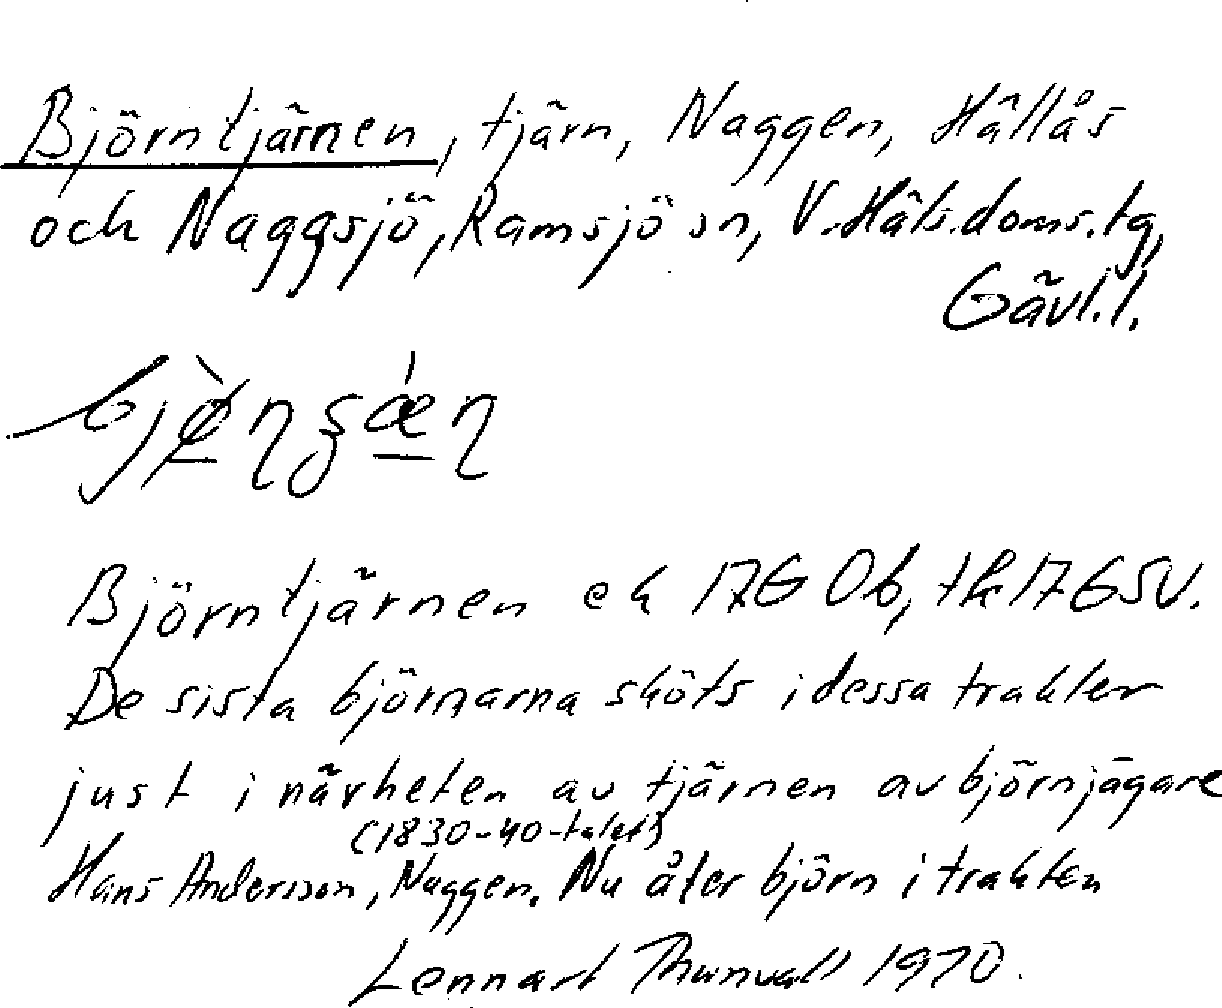 Björntjärnen, tjärn, Naggen, Hållås
och Naggsjö, Ramsjö sn, V. Häls. doms. tg,
Gävl. l.
Björntjärnen ek 17G 0b, tk 17G SV.
De sista björnarna sköts i dessa trakter
just i närheten av tjärnen av björnjägare
(1830-40-talet)
Hans Andersson, Naggen. Nu åter björn i trakten
Lennart Thunvall 1970.